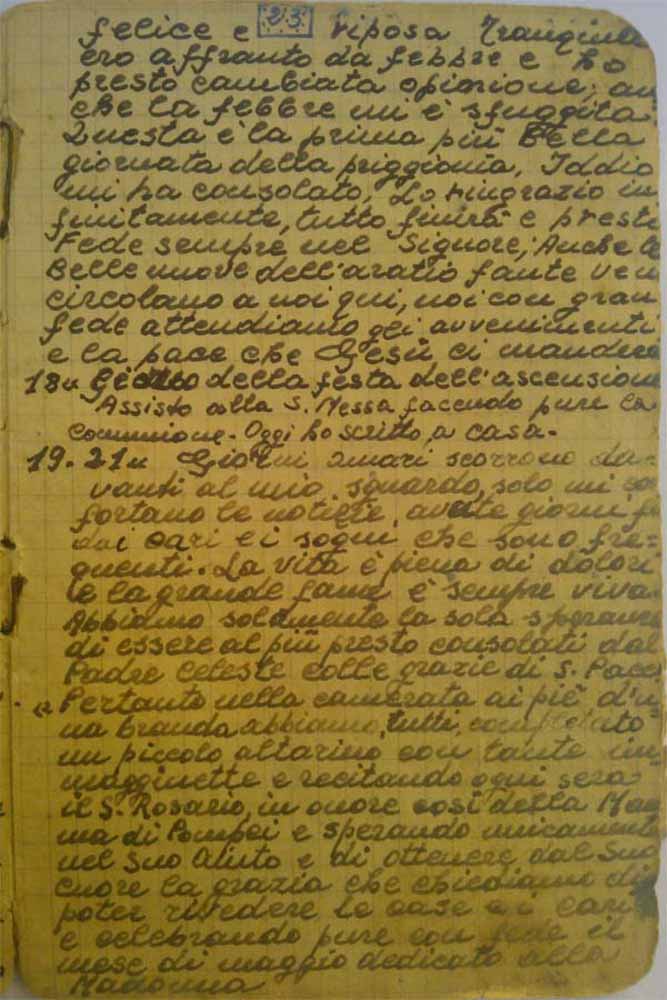 23
felice e riposa Tranquill
ero affranto da febbre e ho
presto cambiata opinione, an
che la febbre mi è sfuggita.
Questa è la prima più Bella
giornata della priggionia, Iddio
mi ha consolato, Lo ringrazio in
finitamente, tutto finirà e presti
Fede sempre nel Signore, Anche le
Belle nuove dell'aratio fante ven
circolano a noi qui, noi con gran
fede attendiamo gli avvenimenti
e la pace che Gesù ci mandera
18„ della festa dell'ascensione
Assisto alla S. Messa facendo pure la
comunione. Oggi ho scritto a casa.
19. 21„ Giorni amari scorrono da=
vanti al mio sguardo, solo mi co
fortano le notizie, avute giorni fa
dai cari e i sogni che sono fre=
quenti. La vita è piena di dolori
e la grande fame è sempre viva.
Abbiamo solamente la sola speranza
di essere al più presto consolati dal
Padre celeste colle grazie di S. Pace
„ Pertanto nella camerata ai piè d'u
na branda abbiamo, tutti, completato
un piccolo altarino con tante im
magginette e recitando ogni sera
il S. Rosario, in onore così della Ma
na di Pompei e sperando unicamente
nel Suo aiuto e di ottenere dal Suo
cuore la grazia che chiediamo di
poter rivedere le case e i cari
e celebrando pure con fede il
mese di maggio dedicato alla
Madonna